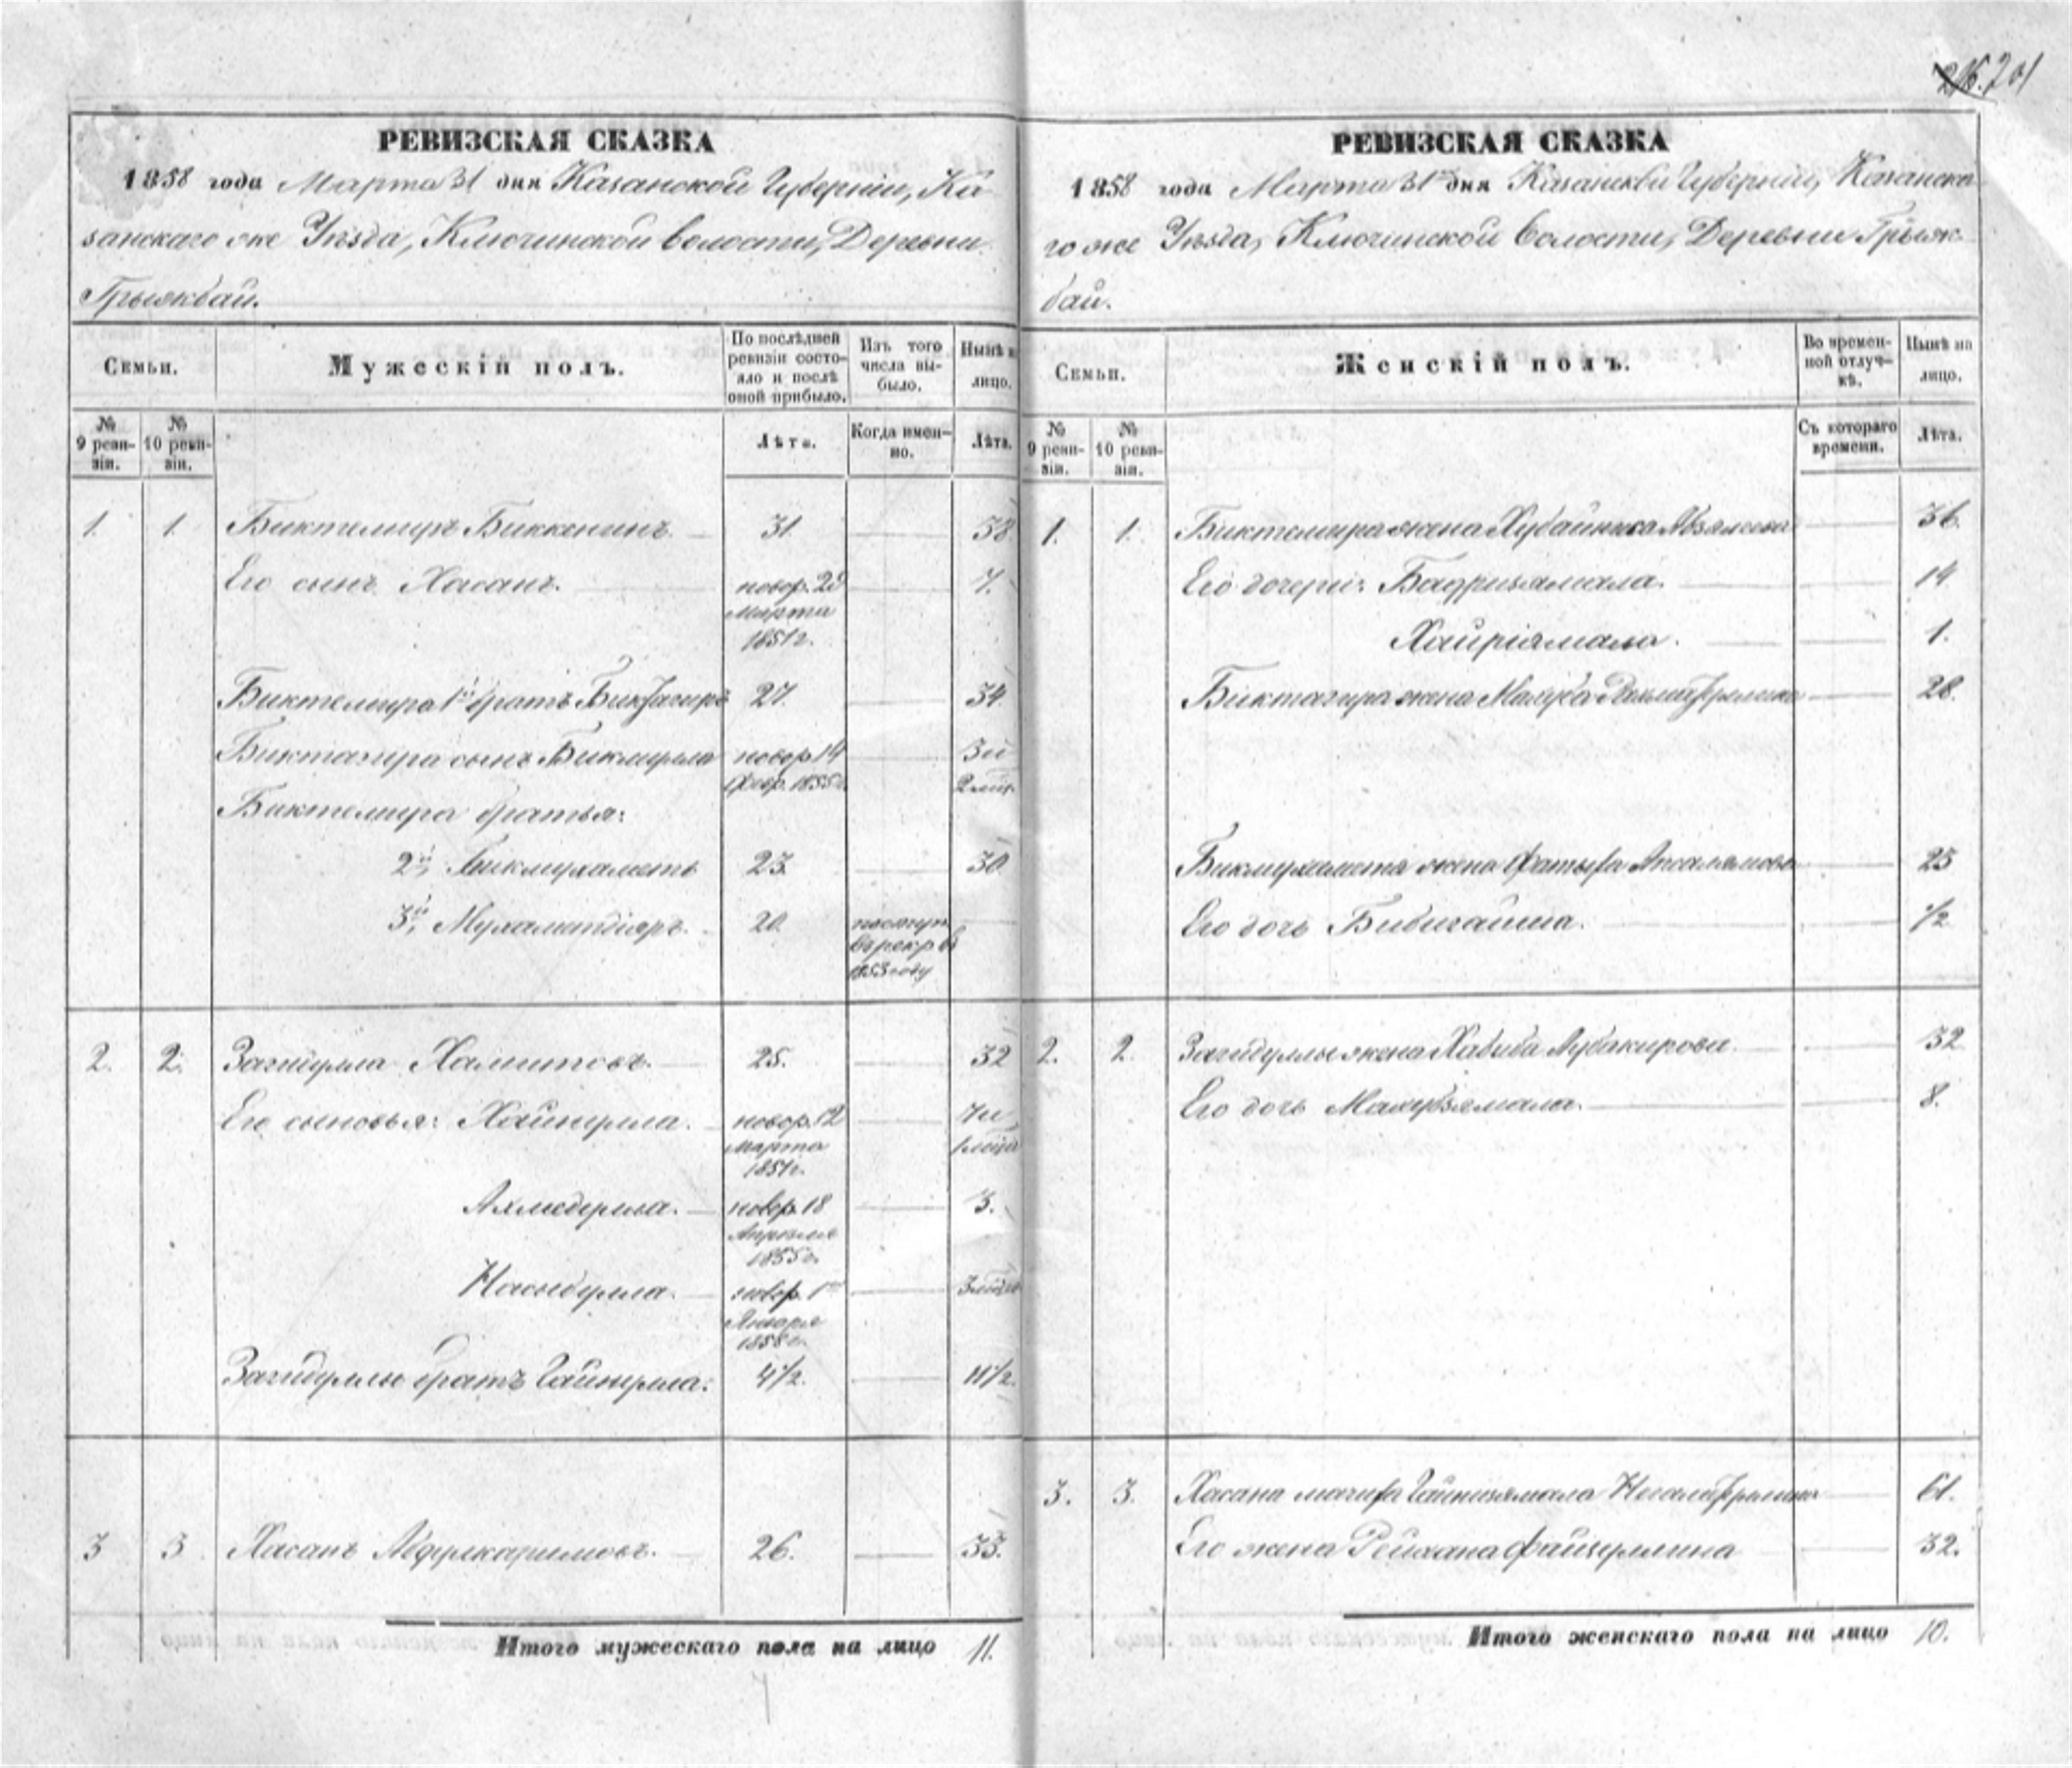 701
РЕВИЗСКАЯ СКАЗКА
1858 года Марта 31 дня Казанской Губерніи, Ка-
занскаго же Уѣзда, Ключинской волости, Деревни
Грыякбаш.
Семьи.
Мужескій полъ.
По послѣдней ревизіи состояло и послѣ оной прибыло.
Изъ того числа выбыло.
Нынѣ на лицо.
№ 9 ревизіи.
№ 10 ревизіи.
Лѣта.
Когда именно.
Лѣта.
1. 1. Биктемиръ Биккенинъ. 31. 38.
Его сынъ Хасанъ. новор. 23 Марта 1851 г. 7.
Биктемира 1й братъ Биктагиръ 27. 34.
Биктагира сынъ Бикмулла новор. 14 Февр. 1855 г. 3 и 2 мѣс.
Биктемира братья:
2й Бикмухаметъ 23. 30
3й Мухаметдіяръ. 20. поступ. въ рекр. въ 1853 году
2. 2. Загидулла Хамитовъ. 25. 32
Его сыновья: Хайрулла. новор. 12 Марта 1851 г. 7 и 1 мѣсц
Ахмедулла. новор. 18 Апрѣля 1855 г. 3.
Насыбулла. новор. 1го Января 1858 г. 3 мѣсц
Загидуллы братъ Гайнулла: 4 1/2. 11 1/2.
3 3 Хасанъ Абдулкаримовъ. 26. 33.
Итого мужескаго пола на лицо 11.
РЕВИЗСКАЯ СКАЗКА
1858 года Марта 31го дня Казанской Губерніи, Казанска-
го же Уѣзда, Ключинской волости, Деревни Грыяк-
баш.
Семьи.
Женскій полъ.
Во временной отлучкѣ.
Нынѣ на лицо.
№ 9 ревизіи.
№ 10 ревизіи.
Съ котораго времени.
Лѣта.
1. 1. Биктемира жена Хубайниса Абзялова 36.
Его дочери: Бадриямала. 14.
Хайріямала. 1.
Биктагира жена 28.
Бикмухамета жена Фатыха 25
Его дочь Бибигайша. 1/2
2. 2. Загидуллы жена Хабиба Аубакирова. 32
Его дочь Махубзямала. 8.
3. 3. Хасана мачиха Гайнизямала 61.
Его жена Рейхана Файзуллина 32.
Итого женскаго пола на лицо 10.